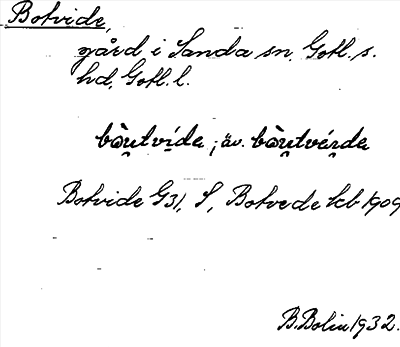 Botvide,
gård i Sanda sn, Gotl. s.
hd, Gotl. l.
bòu̯tvíde ; äv. bòu̯tvérde
Botvide G31, S, Botvede kb 1909
B. Bolin 1932.